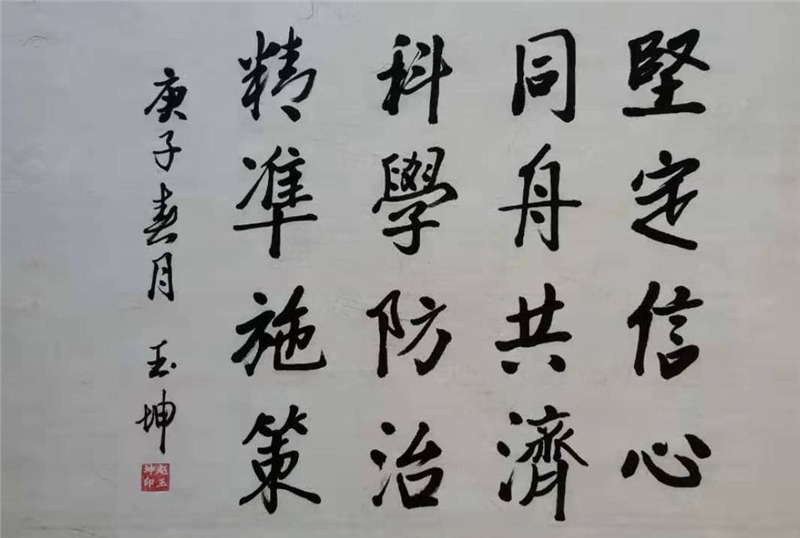 堅定信心
同舟共濟
科學防治
精準施策
庚子春月 玉坤
赵玉坤印